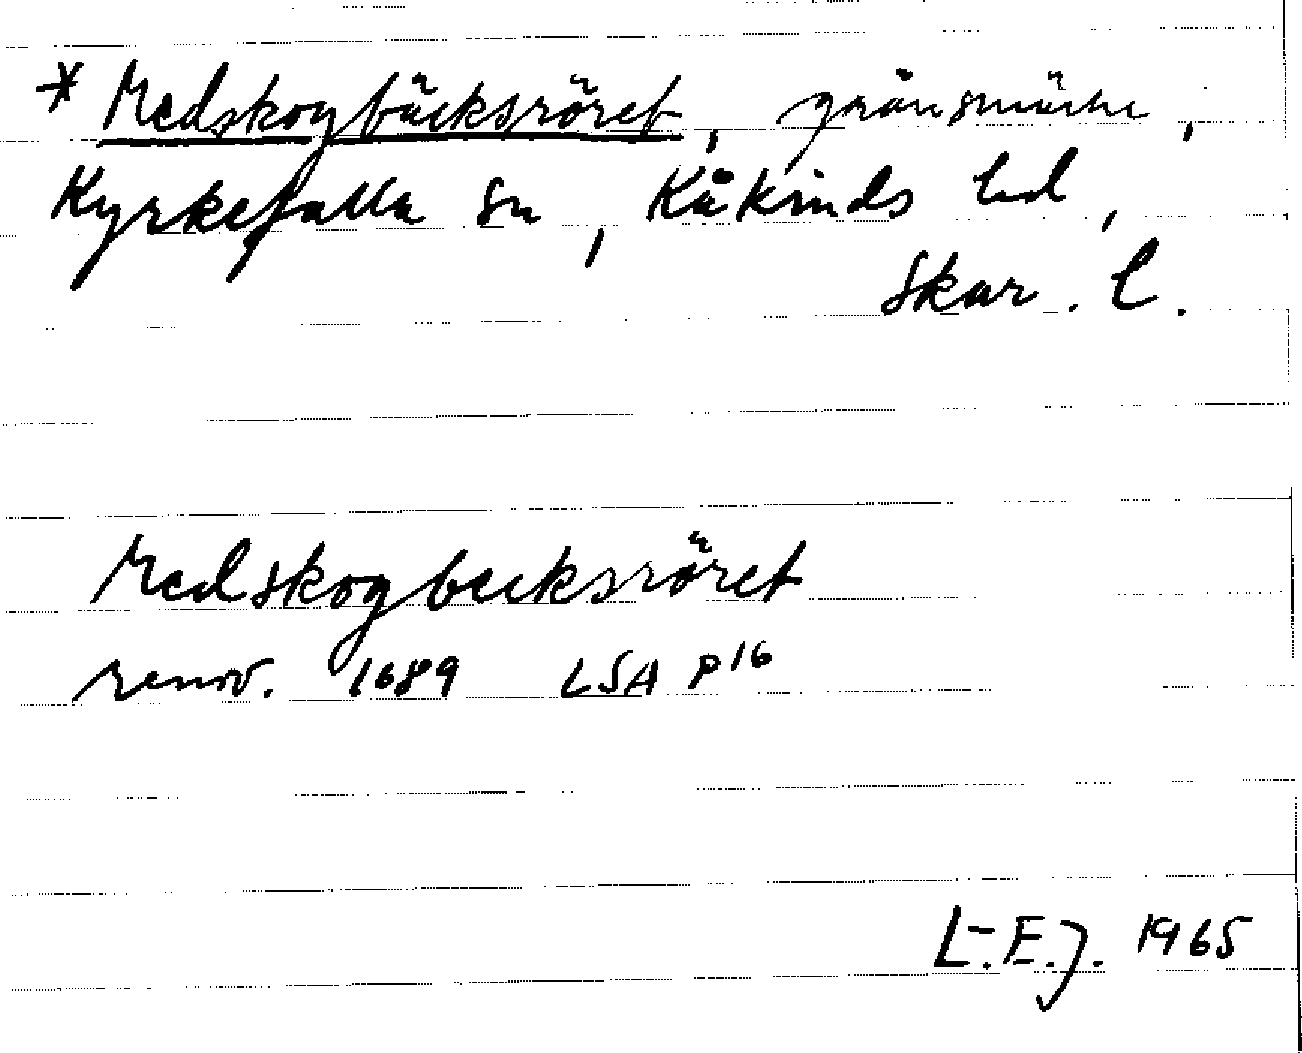 * Medskogbäcksröret, gränsmärke,
Kyrkefalla sn, Kåkinds hd,
Skar. l.
Medskogbecksröret
renov. 1689 LSA P16
L-E.J. 1965